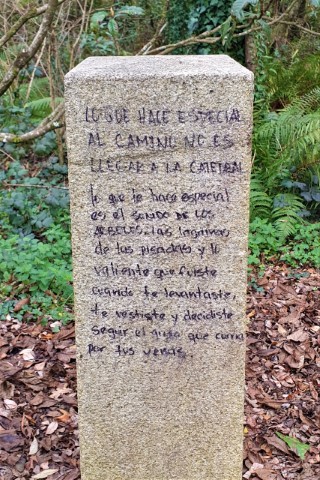 LO QUE HACE ESPECIAL
AL CAMINO NO ES
LLEGAR A LA CATEDRAL
lo que te hace especial
es el SONIDO DE LOS
ÁRBOLES, las lágrimas
de tus pisadas y lo
valiente que fuiste
cuando te levantaste,
te vestiste y decidiste
seguir el que corría
por tus venas.